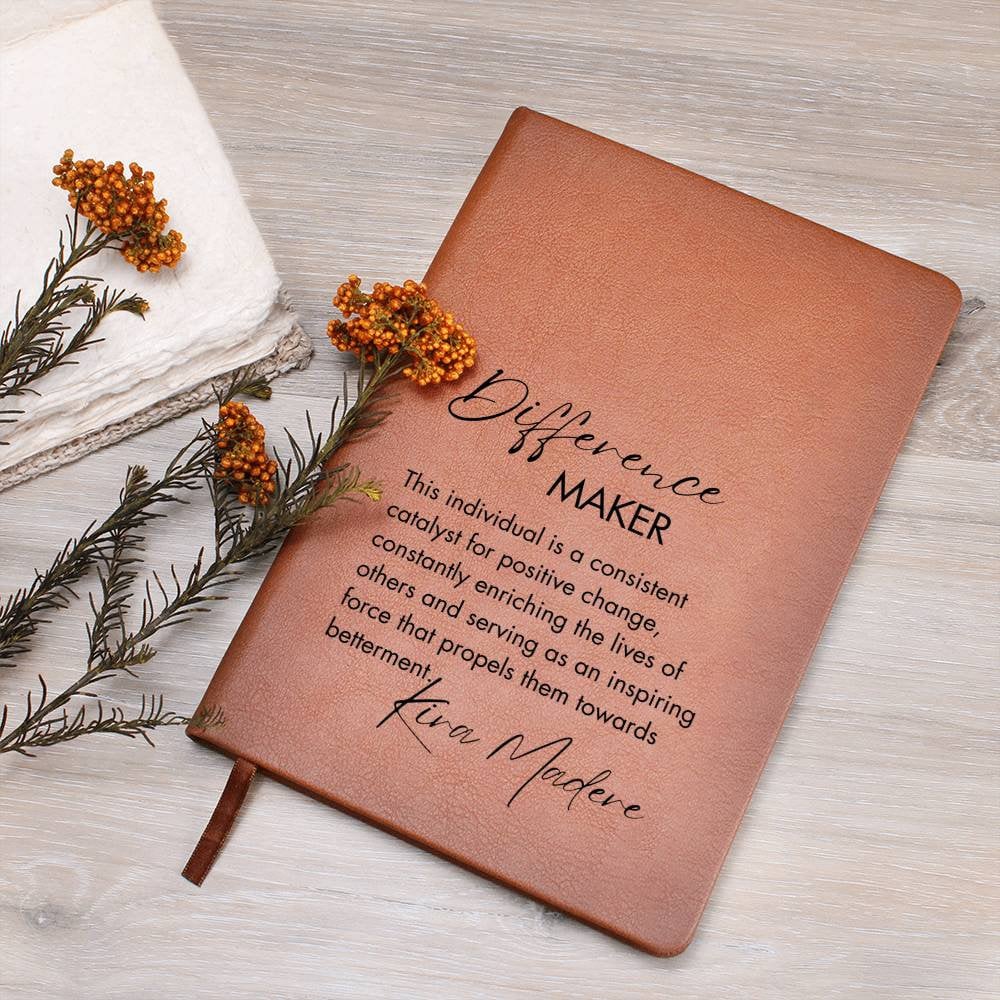 Difference
MAKER
This individual is a consistent
catalyst for positive change,
constantly enriching the lives of
others and serving as an inspiring
force that propels them towards
betterment.
Kira Madere